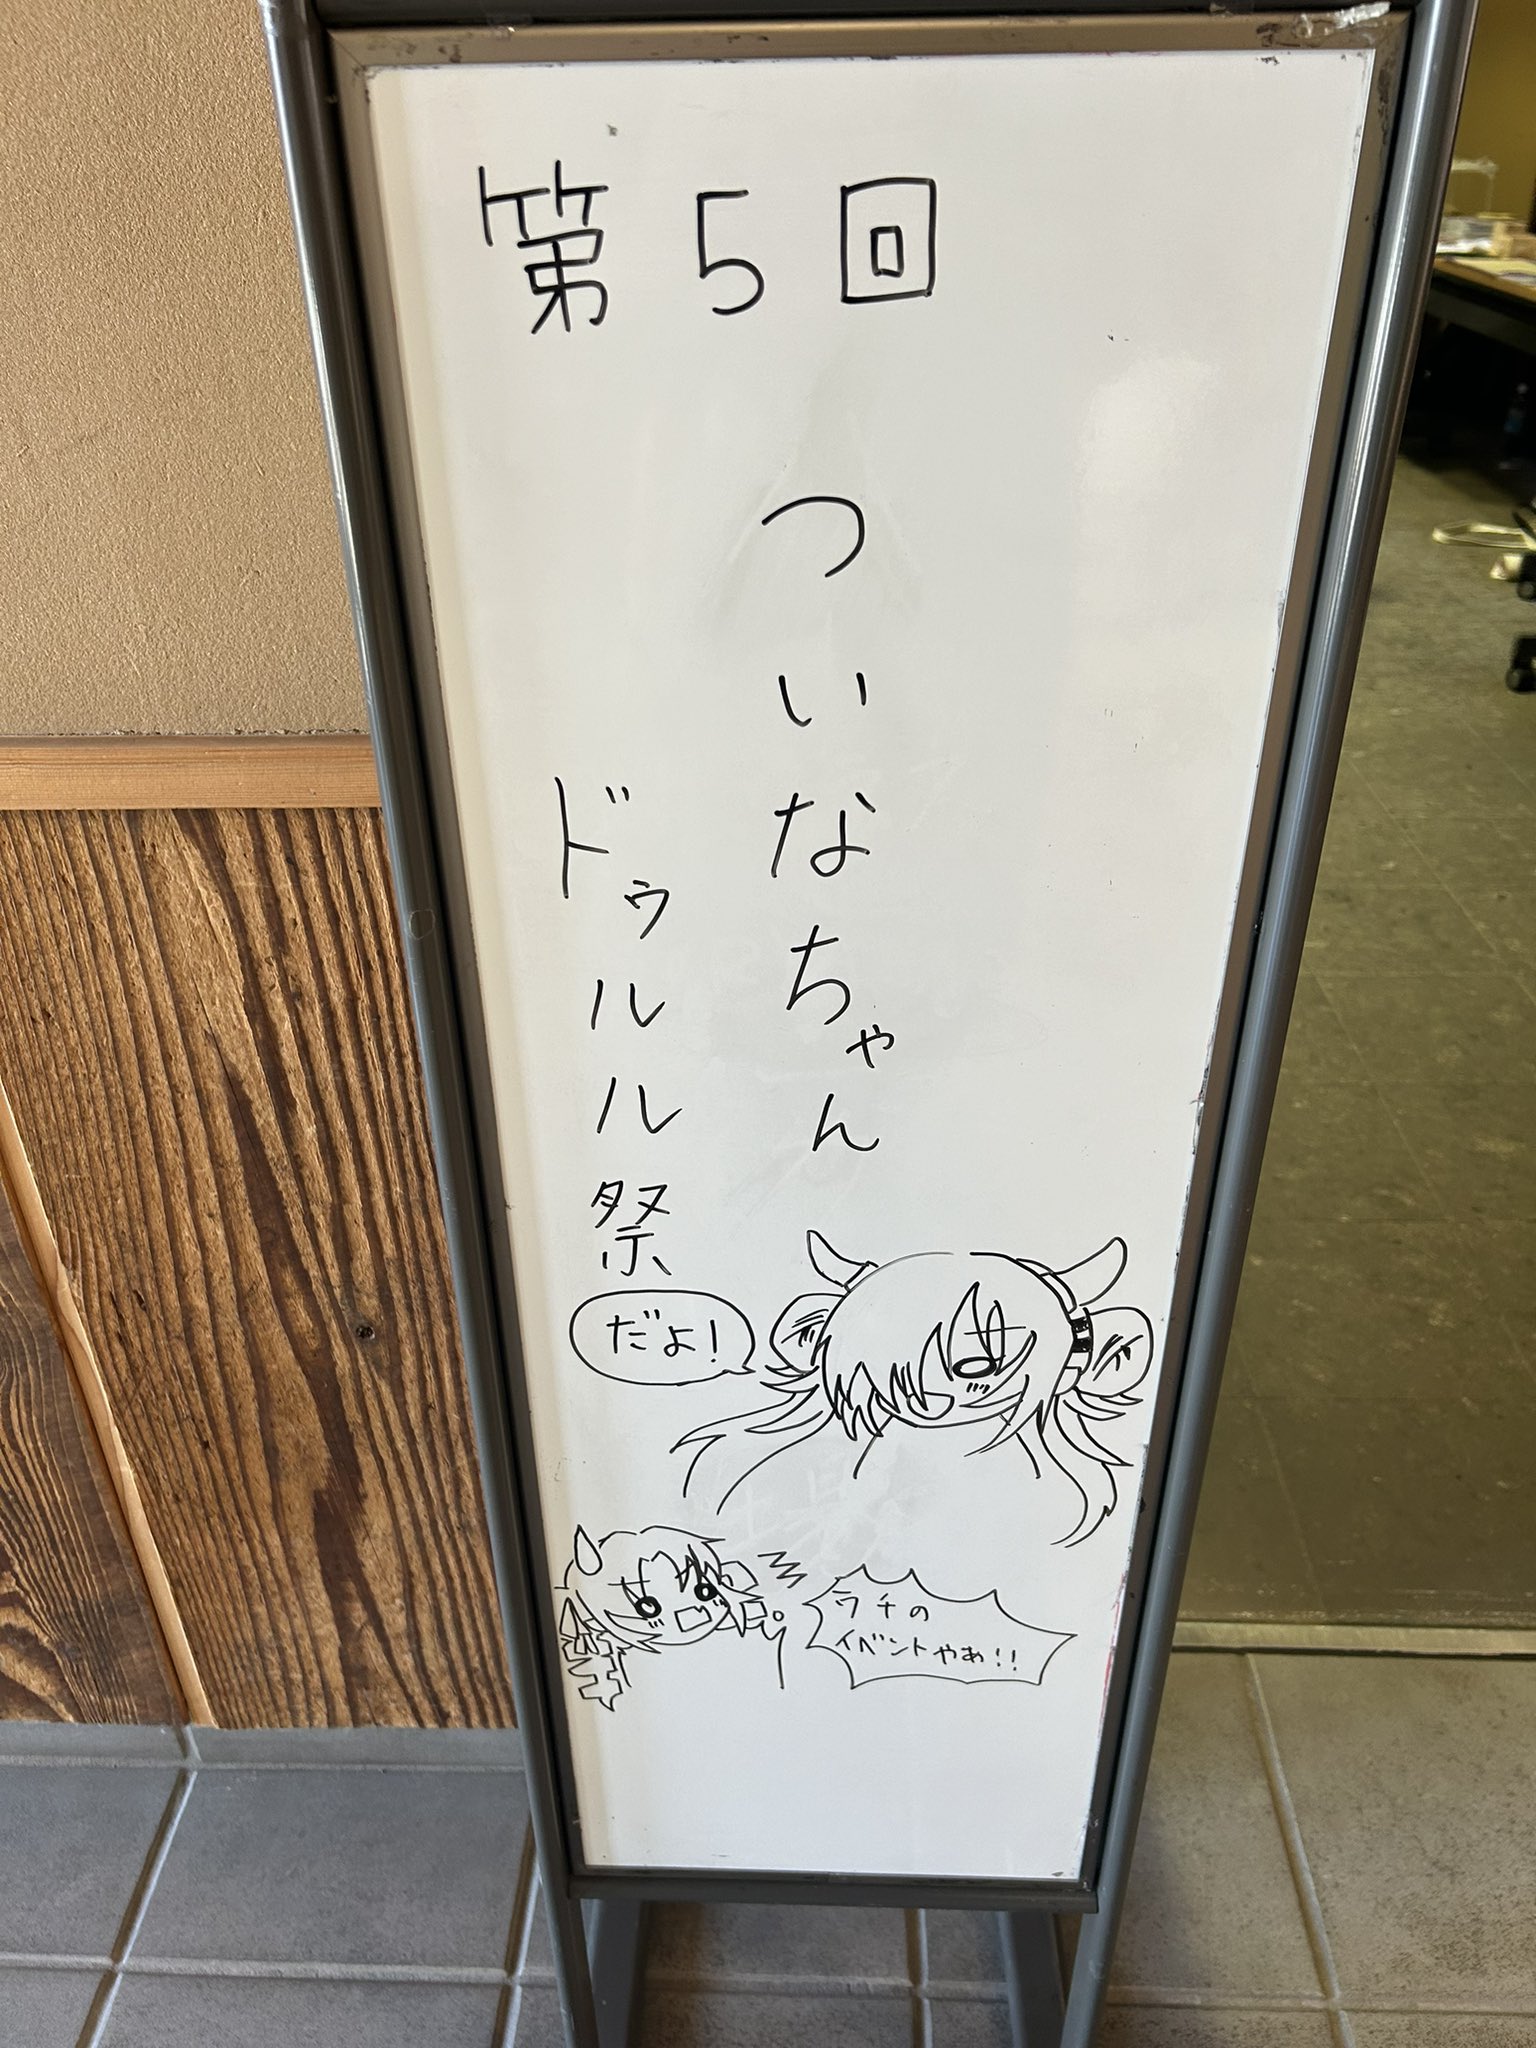 第5回
ついなちゃん
ドゥルル祭
だよ!
ウチの
イベントやぁ!!